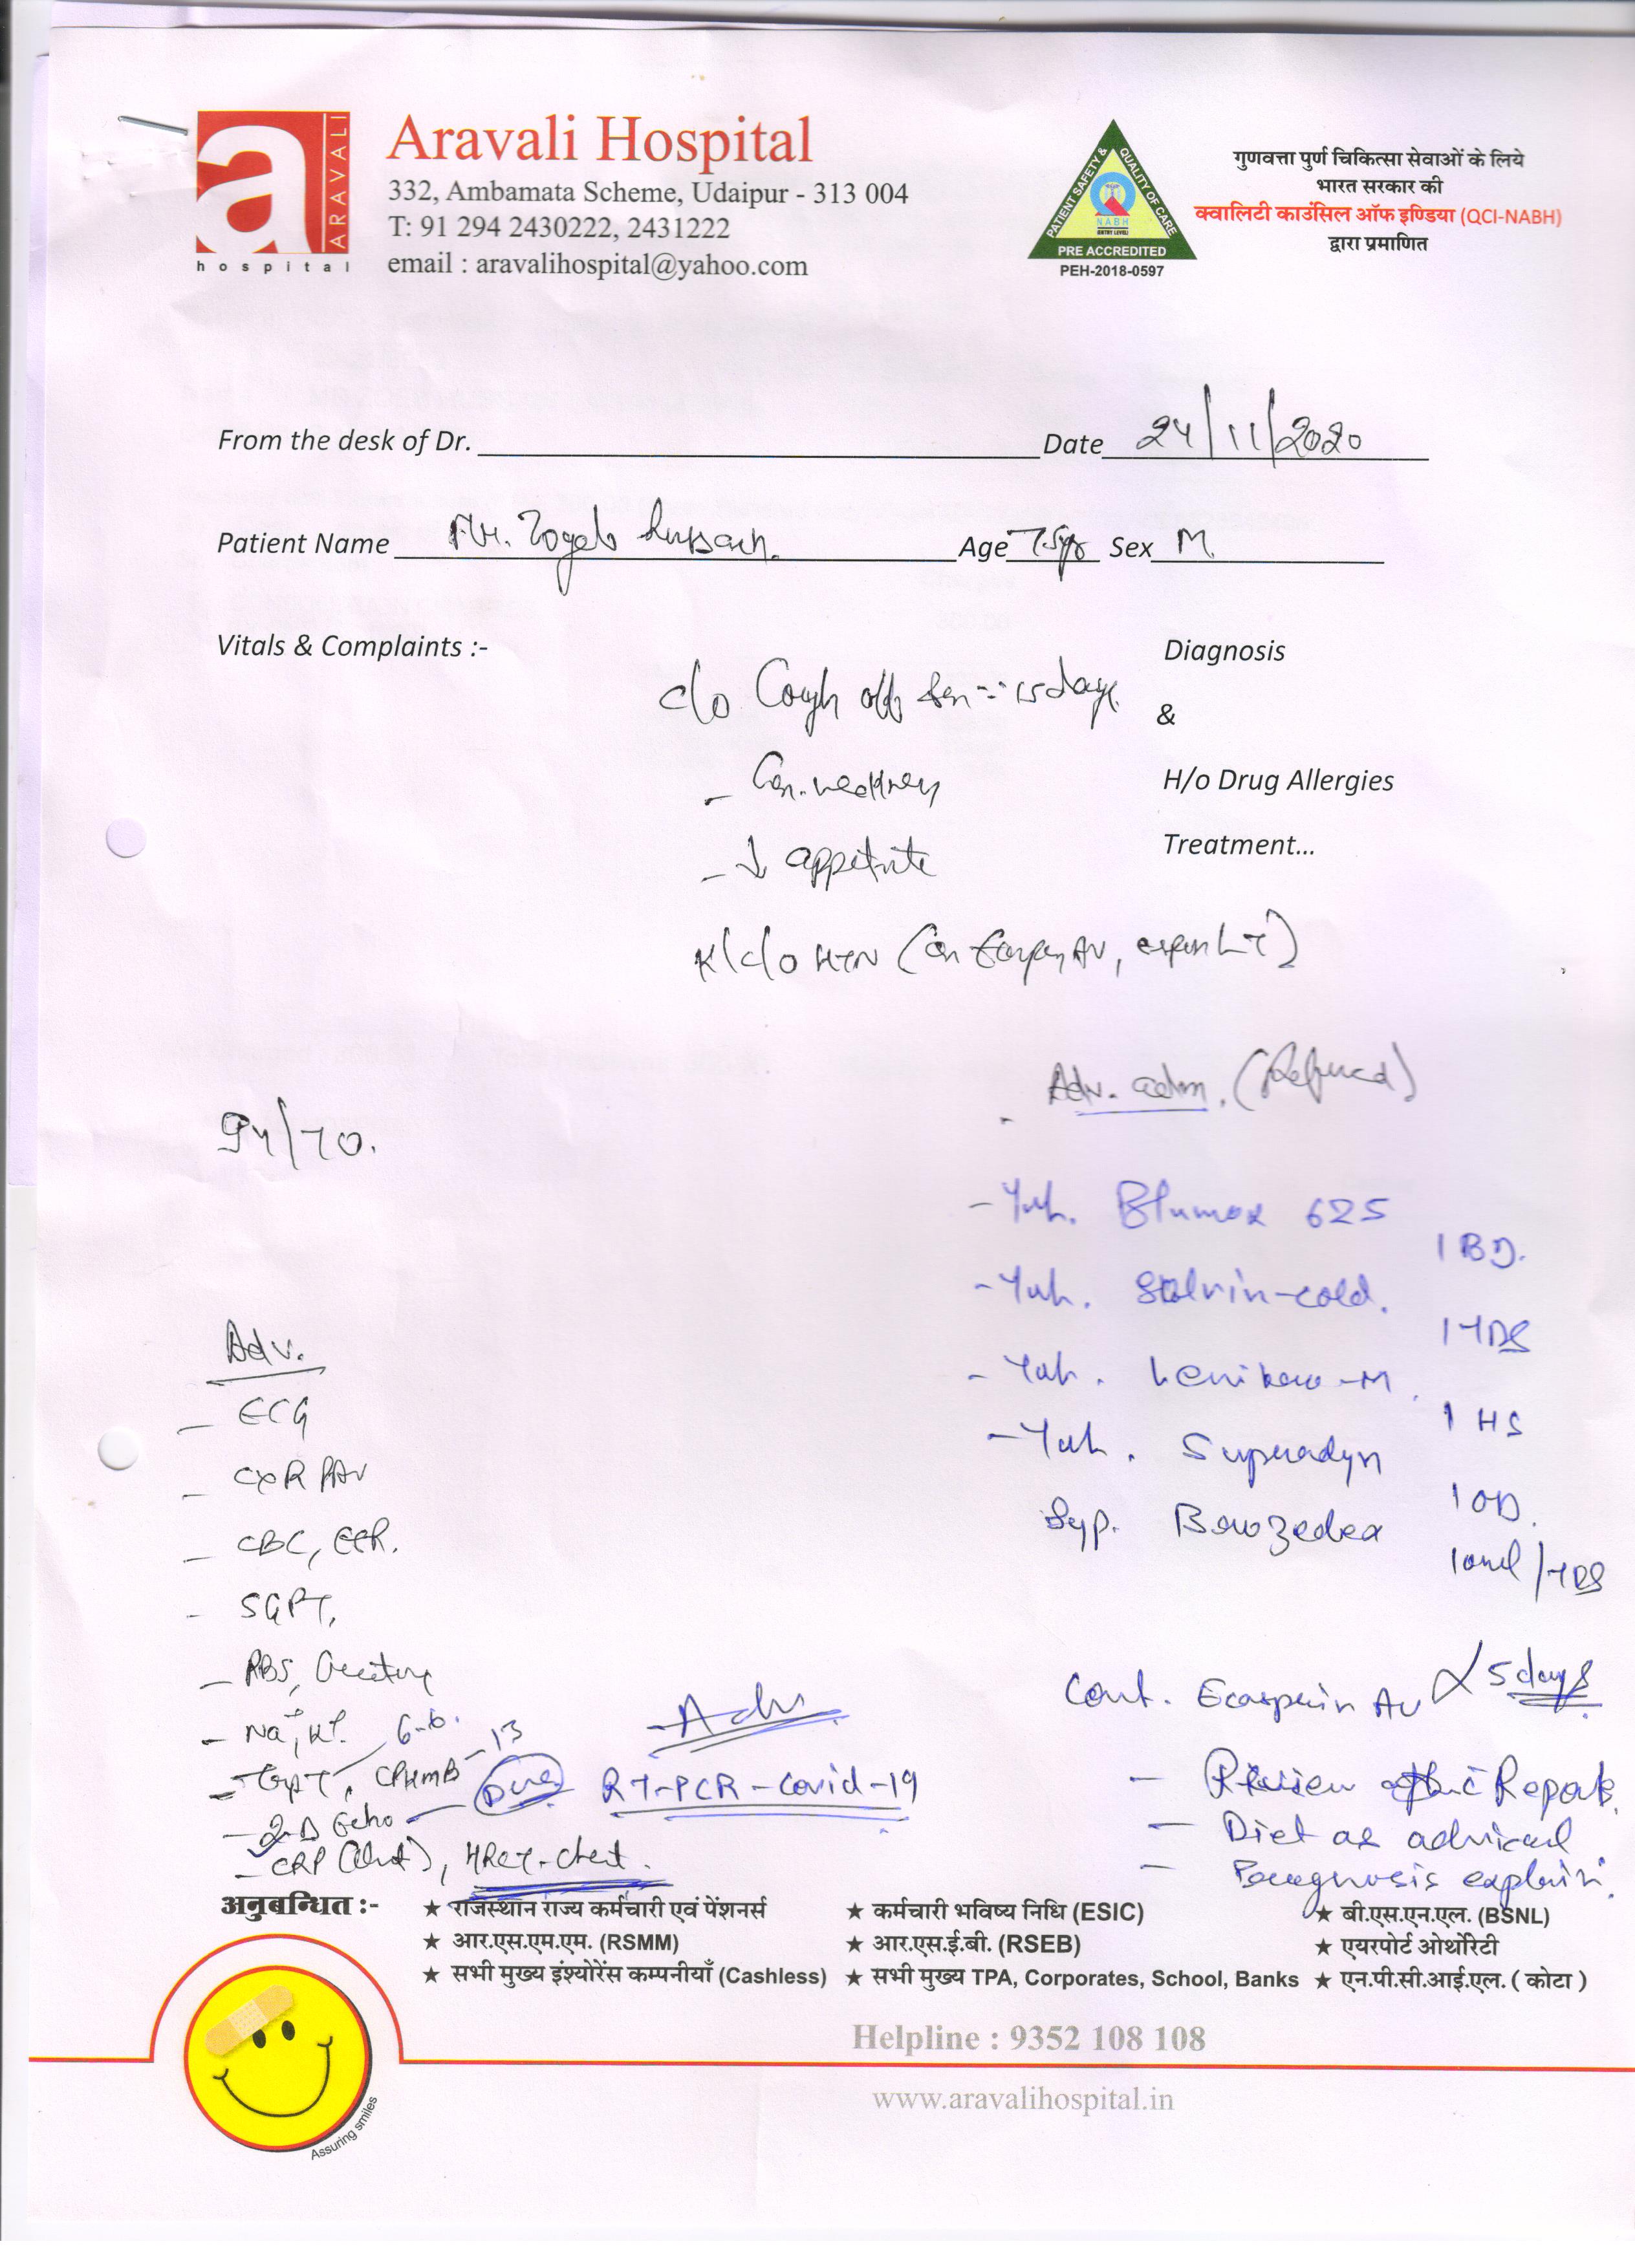 a ARAVALI
hospital
Aravali Hospital
332, Ambamata Scheme, Udaipur - 313 004
T: 91 294 2430222, 2431222
email : aravalihospital@yahoo.com
PATIENT SAFETY & QUALITY OF CARE
NABH
(ENTRY LEVEL)
PRE ACCREDITED
PEH-2018-0597
गुणवत्ता पुर्ण चिकित्सा सेवाओं के लिये
भारत सरकार की
क्वालिटी काउंसिल ऑफ इण्डिया (QCI-NABH)
द्वारा प्रमाणित
From the desk of Dr. Date 24/11/2020
Patient Name Mr. Age 75yr Sex M.
Vitals & Complaints :-
c/o Cough off 15 days.
- Gen. weakness
- ↓ appetite
K/c/o HTN (on AV, LT)
Diagnosis
&
H/o Drug Allergies
Treatment...
- Adv. adm. (Refused)
94/70.
- Tab. Blumox 625 1 BD.
- Tab. Solvin-cold. 1 TDS
- Tab. -M. 1 HS
- Tab. Supradyn 1 OD.
Syp. Brozedex 10ml/TDS
Cont. Ecosprin AV
x 5 days
- Review Reports.
- Diet as advised
- Prognosis explain.
Adv.
- ECG
- CXR PAV
- CBC, ESR.
- SGPT,
- RBS, Creatinine
- Na+, K+.
- TropT, 6-6. CPKMB - 13
- 2-D Echo - Due
- CRP, HRCT-chest.
Adv
RT-PCR-Covid-19
अनुबन्धित :-
★ राजस्थान राज्य कर्मचारी एवं पेंशनर्स ★ कर्मचारी भविष्य निधि (ESIC) ★ बी.एस.एन.एल. (BSNL)
★ आर.एस.एम.एम. (RSMM) ★ आर.एस.ई.बी. (RSEB) ★ एयरपोर्ट ओथोरिटी
★ सभी मुख्य इंश्योरेंस कम्पनीयाँ (Cashless) ★ सभी मुख्य TPA, Corporates, School, Banks ★ एन.पी.सी.आई.एल. ( कोटा )
Helpline : 9352 108 108
www.aravalihospital.in
Assuring smiles